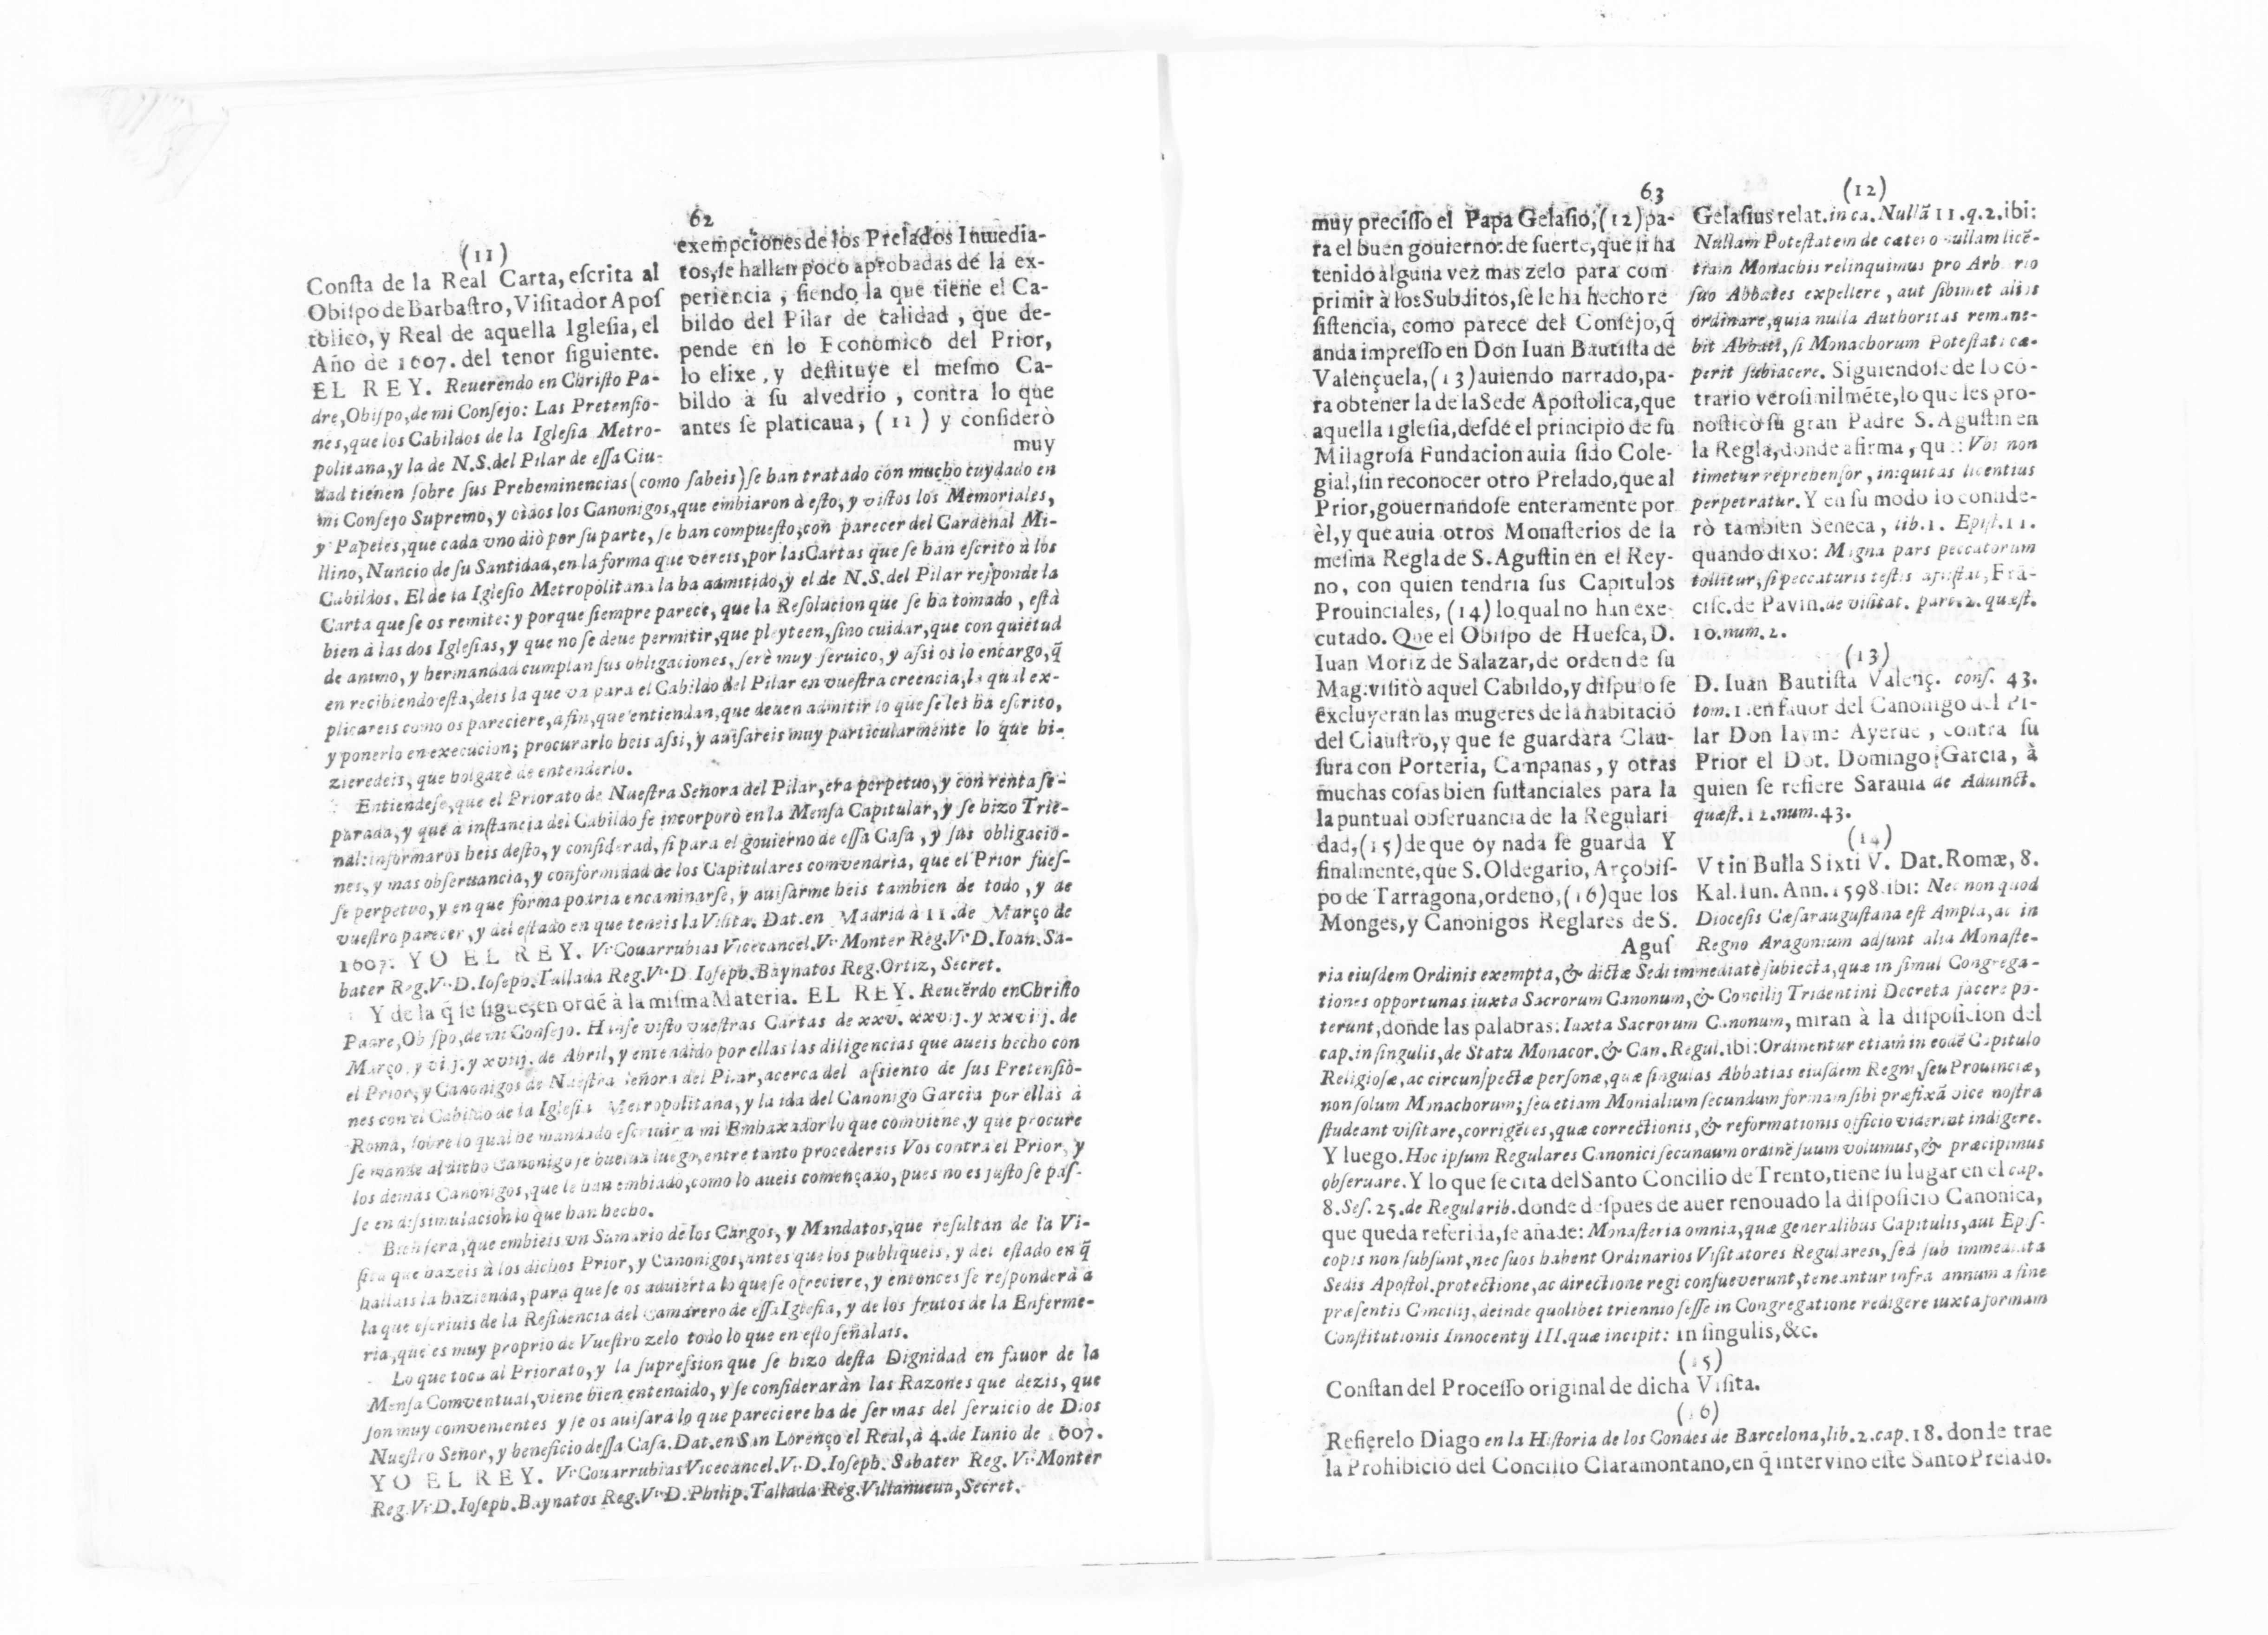 62
exempciones de los Prelados Inmedia-
tos, se hallan poco aprobadas de la ex-
periencia, siendo la que tiene el Ca-
bildo del Pilar de calidad, que de-
pende en lo Economico del Prior,
lo elixe, y destituye el mesmo Ca-
bildo à su alvedrio, contra lo que
antes se platicaua, (11) y considerò
muy
(11)
Consta de la Real Carta, escrita al
Obispo de Barbastro, Visitador Apos
tolico, y Real de aquella Iglesia, el
Año de 1607. del tenor siguiente.
EL REY. Reuerendo en Christo Pa-
dre, Obispo, de mi Consejo: Las Pretensio-
nes, que los Cabildos de la Iglesia Metro-
politana, y la de N.S. del Pilar de essa Ciu-
dad tienen sobre sus Preheminencias (como sabeis) se han tratado con mucho cuydado en
mi Consejo Supremo, y oidos los Canonigos, que embiaron à esto, y vistos los Memoriales,
y Papeles, que cada vno diò por su parte, se han compuesto, con parecer del Cardenal Mi-
llino, Nuncio de su Santidad, en la forma que vereis, por las Cartas que se han escrito à los
Cabildos. El de la Iglesio Metropolitana la ha admitido, y el de N.S. del Pilar responde la
Carta que se os remite: y porque siempre parece, que la Resolucion que se ha tomado, està
bien à las dos Iglesias, y que no se deue permitir, que pleyteen, sino cuidar, que con quietud
de animo, y hermandad cumplan sus obligaciones, serè muy seruico, y assi os lo encargo, q̃
en recibiendo esta, deis la que va para el Cabildo del Pilar en vuestra creencia, la qual ex-
plicareis como os pareciere, a fin, que entiendan, que deuen admitir lo que se les ha escrito,
y ponerlo en execucion; procurarlo heis assi, y auisareis muy particularmente lo que hi-
zieredeis, que holgarè de entenderlo.
Entiendese, que el Priorato de Nuestra Señora del Pilar, era perpetuo, y con renta se-
parada, y que à instancia del Cabildo se incorporò en la Mensa Capitular, y se hizo Trie-
nal: informaros heis desto, y considerad, si para el gouierno de essa Casa, y sus obligacio-
nes, y mas obseruancia, y conformidad de los Capitulares convendria, que el Prior fues-
se perpetvo, y en que forma podria encaminarse, y auisarme heis tambien de todo, y de
vuestro parecer, y del estado en que teneis la Visita. Dat. en Madrid à 11. de Março de
1607. YO EL REY. Vt Couarrubias Vicecancel. Vt Monter Reg. Vt D. Ioan. Sa-
bater Reg. Vt D. Ioseph. Tallada Reg. Vt D. Ioseph. Baynatos Reg. Ortiz, Secret.
Y de la q̃ se sigue, en ordẽ à la misma Materia. EL REY. Reuerẽdo en Christo
Padre, Obispo, de mi Consejo. Hanse visto vuestras Cartas de xxv. xxvij. y xxviij. de
Março, y vij. y xviij. de Abril, y entendido por ellas las diligencias que aueis hecho con
el Prior, y Canonigos de Nuestra Señora del Pilar, acerca del assiento de sus Pretensio-
nes con el Cabildo de la Iglesia Metropolitana, y la ida del Canonigo Garcia por ellas à
Roma, sobre lo qual he mandado escriuir a mi Embaxador lo que comviene, y que procure
se mande al dicho Canonigo se buelua luego, entre tanto procedereis Vos contra el Prior, y
los demàs Canonigos, que le han embiado, como lo aueis començado, pues no es justo se pas-
se en dissimulacion lo que han hecho.
Bien sera, que embieis vn Sumario de los Cargos, y Mandatos, que resultan de la Vi-
sita que hazeis à los dichos Prior, y Canonigos, antes que los publiqueis, y del estado en q̃
hallais la hazienda, para que se os aduierta lo que se ofreciere, y entonces se responderà a
la que escriuis de la Residencia del Camarero de essa Iglesia, y de los frutos de la Enferme-
ria, que es muy proprio de Vuestro zelo todo lo que en esto señalais.
Lo que toca al Priorato, y la supression que se hizo desta Dignidad en fauor de la
Mensa Comventual, viene bien entendido, y se consideraràn las Razones que dezis, que
son muy comvenientes y se os auisara lo que pareciere ha de ser mas del seruicio de Dios
Nuestro Señor, y beneficio dessa Casa. Dat. en San Lorenço el Real, à 4. de Iunio de 1607.
YO EL REY. Vt Couarrubias Vicecancel. Vt D. Ioseph. Sabater Reg. Vt Monter
Reg. Vt D. Ioseph. Baynatos Reg. Vt D. Philip. Tallada Reg. Villanueua, Secret.
63
muy precisso el Papa Gelasio, (12) pa-
ra el buen gouierno: de suerte, que si ha
tenido alguna vez mas zelo para com
primir à los Subditos, se le ha hecho re
sistencia, como parece del Consejo, q̃
anda impresso en Don Iuan Bautista de
Valençuela, (13) auiendo narrado, pa-
ra obtener la de la Sede Apostolica, que
aquella iglesia, desde el principio de su
Milagrosa Fundacion auia sido Cole-
gial, sin reconocer otro Prelado, que al
Prior, gouernandose enteramente por
èl, y que auia otros Monasterios de la
mesma Regla de S. Agustin en el Rey-
no, con quien tendria sus Capitulos
Prouinciales, (14) lo qual no han exe-
cutado. Que el Obispo de Huesca, D.
Iuan Moriz de Salazar, de orden de su
Mag. visitò aquel Cabildo, y dispuso se
excluyeran las mugeres de la habitaciõ
del Claustro, y que se guardàra Clau-
sura con Porteria, Campanas, y otras
muchas cosas bien sustanciales para la
la puntual obseruancia de la Regulari
dad, (15) de que oy nada se guarda Y
finalmente, que S. Oldegario, Arçobis-
po de Tarragona, ordenò, (16) que los
Monges, y Canonigos Reglares de S.
Agus
(12)
Gelasius relat. in ca. Nullã 11. q. 2. ibi:
Nullam Potestatem de cætero nullam licẽ-
tiam Monachis relinquimus pro Arbitrio
suo Abbates expellere, aut sibimet alios
ordinare, quia nulla Authoritas remane-
bit Abbati, si Monachorum Potestati cæ-
perit subiacere. Siguiendose de lo cõ-
trario verosimilmẽte, lo que les pro-
nosticò su gran Padre S. Agustin en
la Regla, donde afirma, que: Vbi non
timetur reprehensor, iniquitas licentius
perpetratur. Y en su modo lo conside-
rò tambien Seneca, lib. 1. Epist. 11.
quando dixo: Magna pars peccatorum
tollitur, si peccaturis testis assistat, Frã-
cisc. de Pavin. de visitat. part. 2. quæst.
10. num. 2.
(13)
D. Iuan Bautista Valenç. cons. 43.
tom. 1. en fauor del Canonigo del Pi-
lar Don Iayme Ayerue, contra su
Prior el Dot. Domingo Garcia, à
quien se refiere Sarauia de Adiunct.
quæst. 12. num. 43.
(14)
Vt in Bulla Sixti V. Dat. Romæ, 8.
Kal. Iun. Ann. 1598. ibi: Nec non quod
Diocesis Cæsaraugustana est Ampla, ac in
Regno Aragonum adsunt alia Monaste-
ria eiusdem Ordinis exempta, & dictæ Sedi immediatè subiecta, quæ in simul Congrega-
tiones opportunas iuxta Sacrorum Canonum, & Concilij Tridentini Decreta facere po-
terunt, donde las palabras: Iuxta Sacrorum Canonum, miran à la disposicion del
cap. in singulis, de Statu Monacor. & Can. Regul. ibi: Ordinentur etiam in eodẽ Capitulo
Religiosæ, ac circunspectæ personæ, quæ singulas Abbatias eiusdem Regni, seu Prouinciæ,
non solum Monachorum; sed etiam Monialium secundum formam sibi præfixã vice nostra
studeant visitare, corrigẽtes, quæ correctionis, & reformationis officio viderint indigere.
Y luego. Hoc ipsum Regulares Canonici secundum ordinẽ suum volumus, & præcipimus
obseruare. Y lo que se cita del Santo Concilio de Trento, tiene su lugar en el cap.
8. Ses. 25. de Regularib. donde despues de auer renouado la disposiciõ Canonica,
que queda referida, se añade: Monasteria omnia, quæ generalibus Capitulis, aut Epis-
copis non subsunt, nec suos habent Ordinarios Visitatores Regulares, sed sub immediata
Sedis Apostol. protectione, ac directione regi consueverunt, teneantur infra annum a fine
præsentis Concilij, deinde quolibet triennio sesse in Congregatione redigere iuxta formam
Constitutionis Innocentij III. quæ incipit: in singulis, &c.
(15)
Constan del Processo original de dicha Visita.
(16)
Refierelo Diago en la Historia de los Condes de Barcelona, lib. 2. cap. 18. donde trae
la Prohibiciõ del Concilio Claramontano, en q̃ intervino este Santo Prelado.